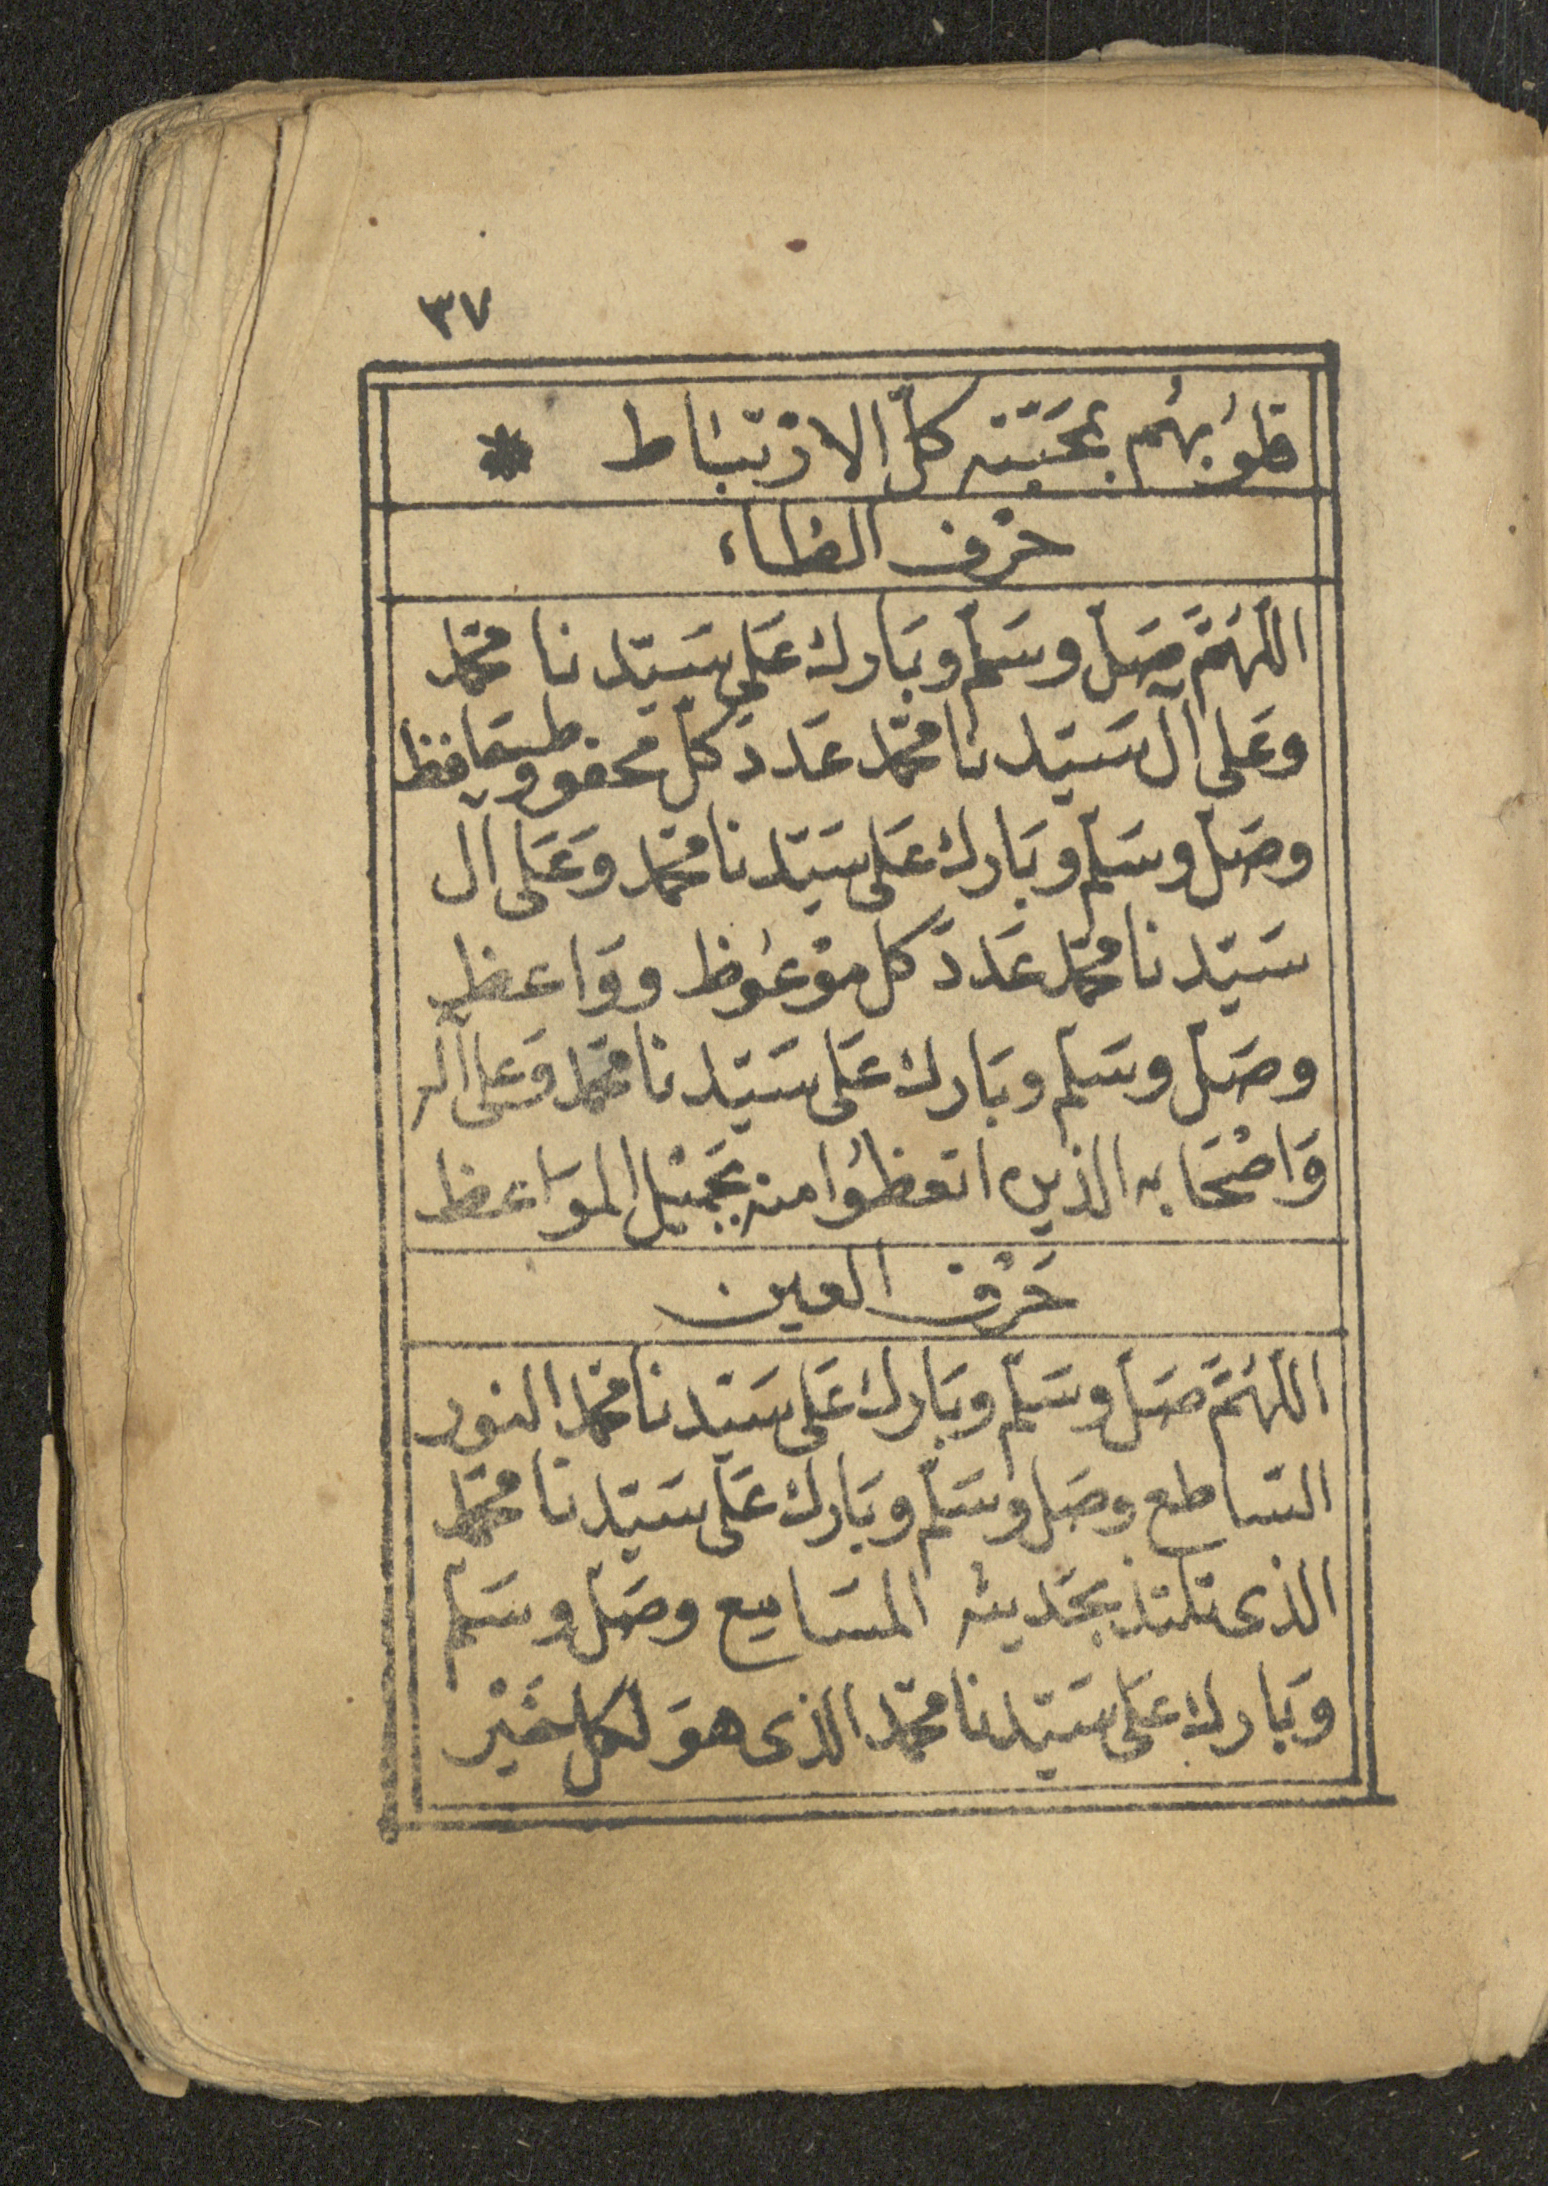 ٣٧
قلوبهُم بمحَبّته كلّ الارتبَاط *
حرْف الظاء
اللّهمَّ صَلّ وسَلّم وبَارك عَلى سَيّدنا محمّد
وعَلى آل سَيّدنا محمّد عَددَ كلّ محفوظ وحَافظ
وصَلّ وسَلّم وبَارك عَلى سَيّدنا محمّد وَعَلى آل
سَيّدنا محمّد عَددَ كل موْعُوظ ووَاعظ
وصَلّ وسَلّم وبَارك عَلى سَيّدنا محمّد وَعلى آله
وَاصْحَابه الذين اتعظُوا منه بجَميْل الموَاعظ
حَرْف العين
اللّهمَّ صَلّ وسَلّم وبَارك عَلى سَيّدنا محمّد النور
السَّاطع وصَل وسَلّم وبَارك عَلى سَيّدنا محمّد
الذى تلتذ بحَديثه المسَامع وصَلّ وسَلّم
وبَارك عَلى سَيّدنا محمّد الذى هوَ لكل خَيْر